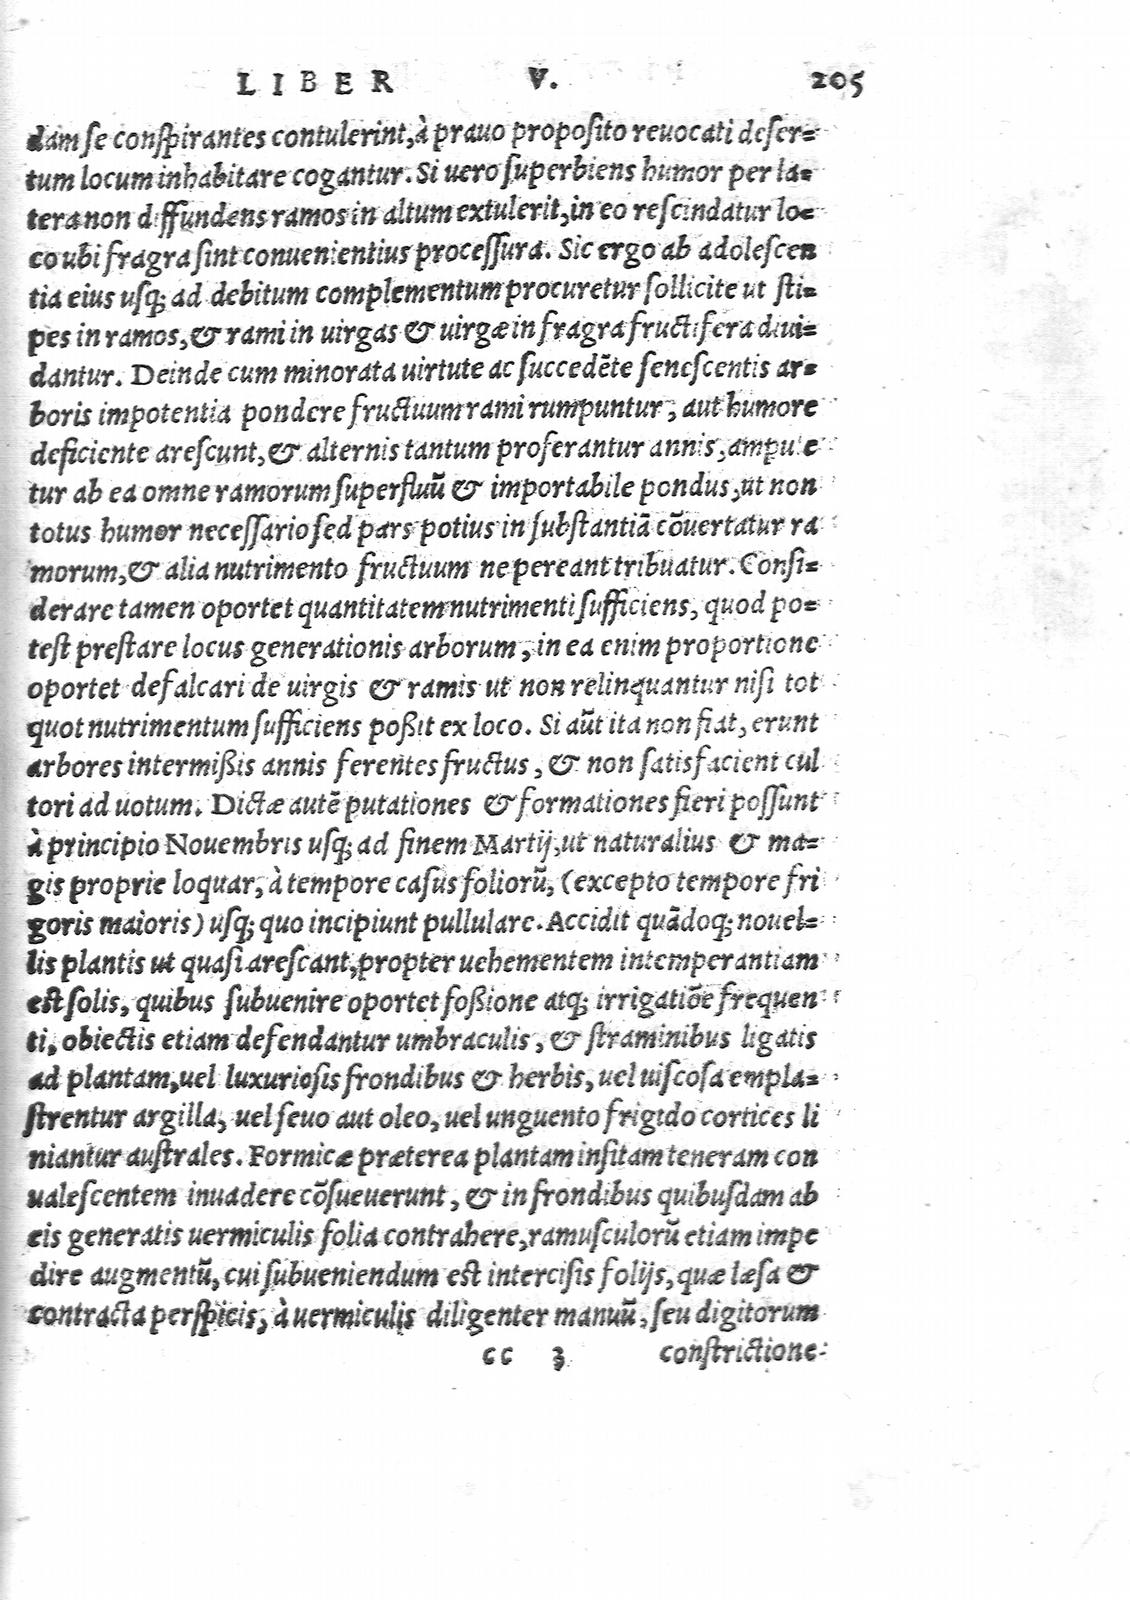 LIBER V. 205
dam se conspirantes contulerint, à prauo proposito reuocati deser=
tum locum inhabitare cogantur. Si uero superbiens humor per la=
tera non diffundens ramos in altum extulerit, in eo rescindatur lo=
co ubi fragra sint conuenientius processura. Sic ergo ab adolescen
tia eius usq; ad debitum complementum procuretur sollicite ut sti=
pes in ramos, & rami in uirgas & uirgæ in fragra fructifera diui=
dantur. Deinde cum minorata uirtute ac succedẽte senescentis ar=
boris impotentia pondere fructuum rami rumpuntur, aut humore
deficiente arescunt, & alternis tantum proferantur annis, ampute
tur ab ea omne ramorum superfluũ & importabile pondus, ut non
totus humor necessario sed pars potius in substantiã cõuertatur ra
morum, & alia nutrimento fructuum ne pereant tribuatur. Consi=
derare tamen oportet quantitatem nutrimenti sufficiens, quod po=
test prestare locus generationis arborum, in ea enim proportione
oportet defalcari de uirgis & ramis ut non relinquantur nisi tot
quot nutrimentum sufficiens poßit ex loco. Si aũt ita non fiat, erunt
arbores intermißis annis ferentes fructus, & non satisfacient cul
tori ad uotum. Dictæ autẽ putationes & formationes fieri possunt
à principio Nouembris usq; ad finem Martij, ut naturalius & ma=
gis proprie loquar, à tempore casus foliorũ, (excepto tempore fri
goris maioris) usq; quo incipiunt pullulare. Accidit quãdoq; nouel=
lis plantis ut quasi arescant, propter uehementem intemperantiam
est solis, quibus subuenire oportet foßione atq; irrigatiõe frequen
ti, obiectis etiam defendantur umbraculis, & straminibus ligatis
ad plantam, uel luxuriosis frondibus & herbis, uel uiscosa empla=
strentur argilla, uel seuo aut oleo, uel unguento frigido cortices li
niantur australes. Formicæ præterea plantam insitam teneram con
ualescentem inuadere cõsueuerunt, & in frondibus quibusdam ab
eis generatis uermiculis folia contrahere, ramusculorũ etiam impe
dire augmentũ, cui subueniendum est intercisis folijs, quæ læsa &
contracta perspicis, à uermiculis diligenter manuũ, seu digitorum
cc 3 constrictione